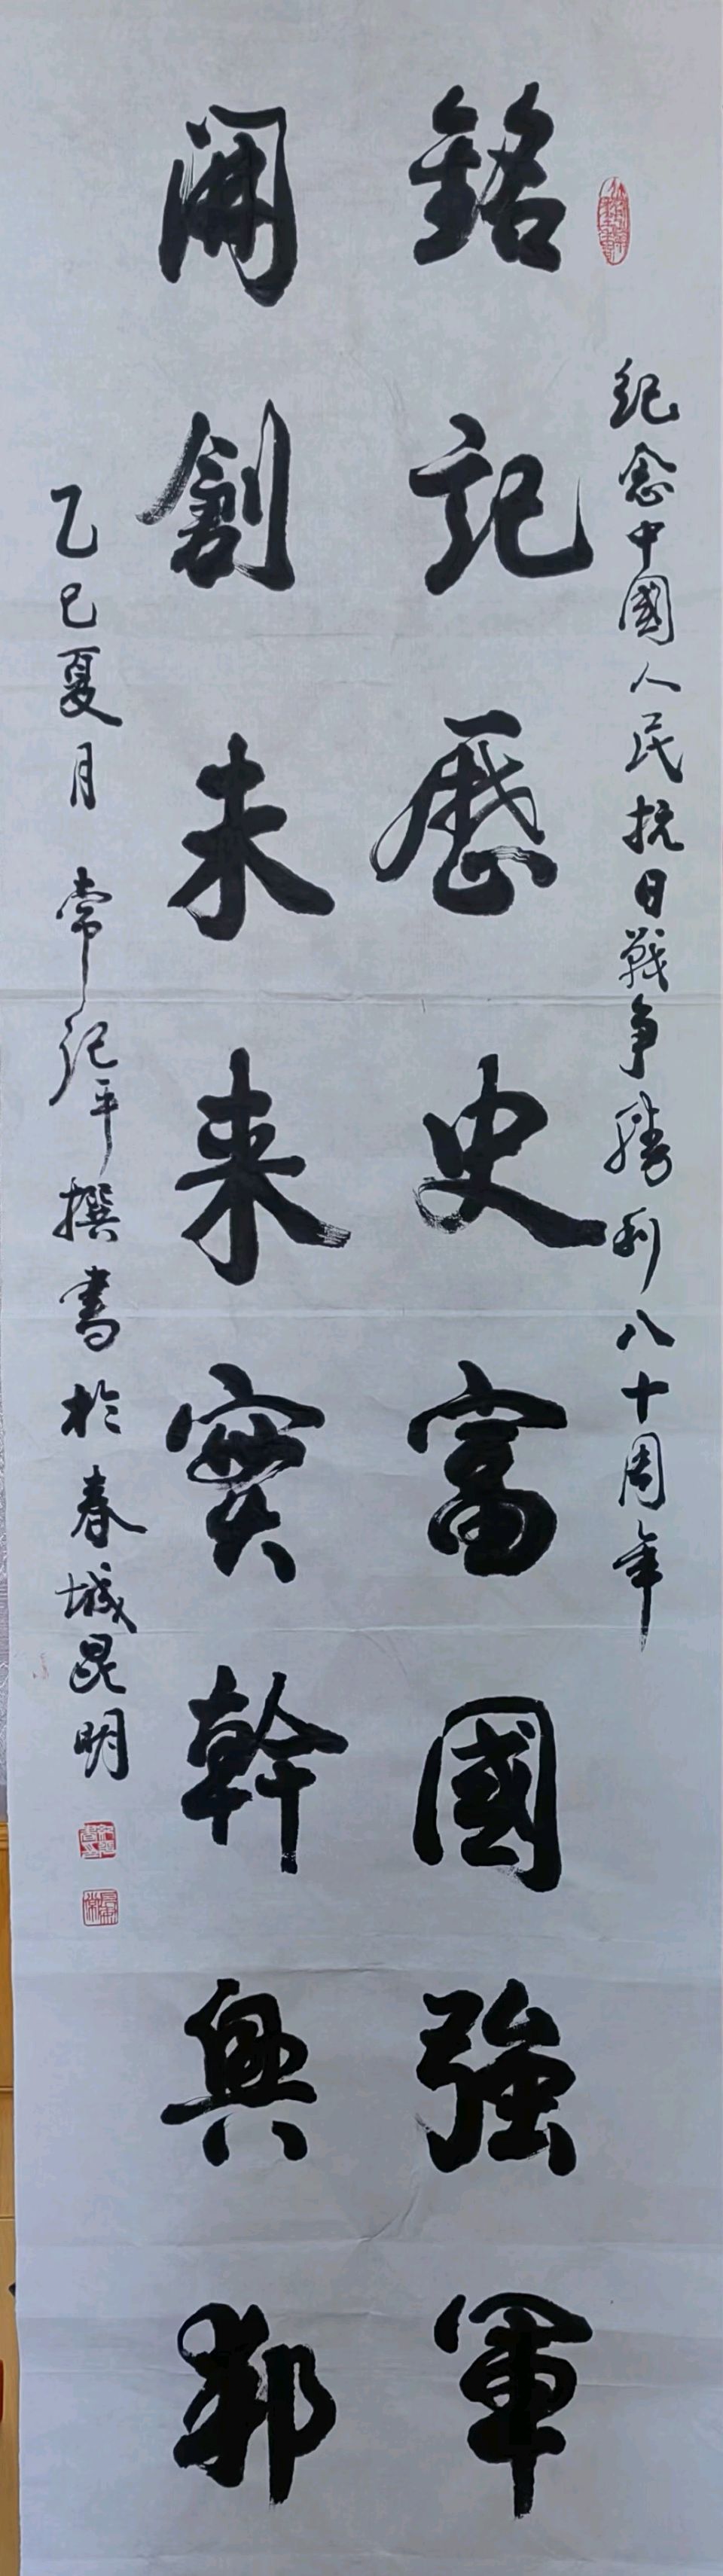 紀念中國人民抗日戰争勝利八十周年
銘記歷史富國強軍
開創未來實幹興邦
乙巳夏月 常記平撰書於春城昆明